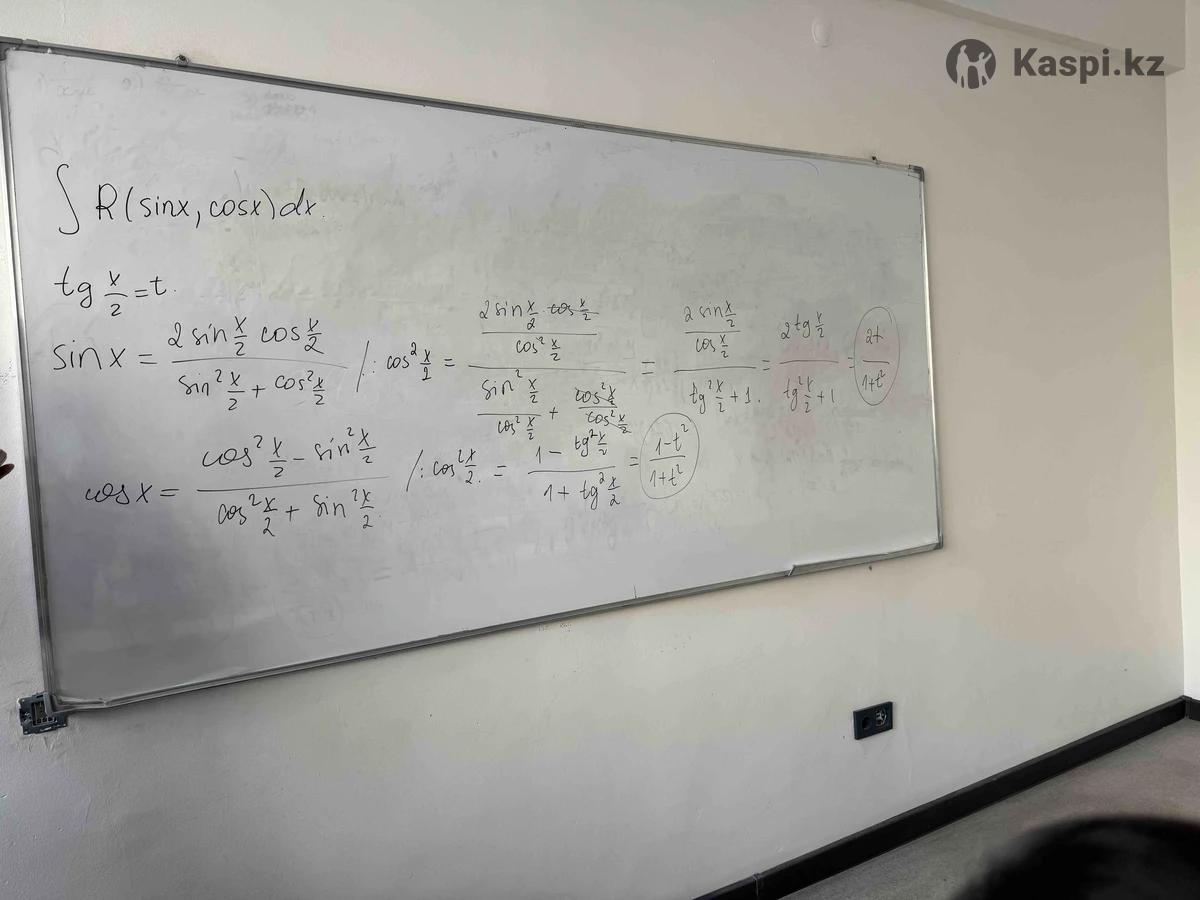 Kaspi.kz
∫ R(sinx, cosx)dx.
tg x/2 = t.
sinx = (2 sin x/2 cos x/2)/(sin² x/2 + cos² x/2) /: cos² x/2 = ((2 sin x/2 · cos x/2)/(cos² x/2))/((sin² x/2)/(cos² x/2) + (cos² x/2)/(cos² x/2)) = ((2 sin x/2)/(cos x/2))/(tg² x/2 + 1.) = (2 tg x/2)/(tg² x/2 + 1) = (2t)/(1+t²)
cosx = (cos² x/2 − sin² x/2)/(cos² x/2 + sin² x/2) /: cos² x/2. = (1 − tg² x/2)/(1 + tg² x/2) = (1−t²)/(1+t²)